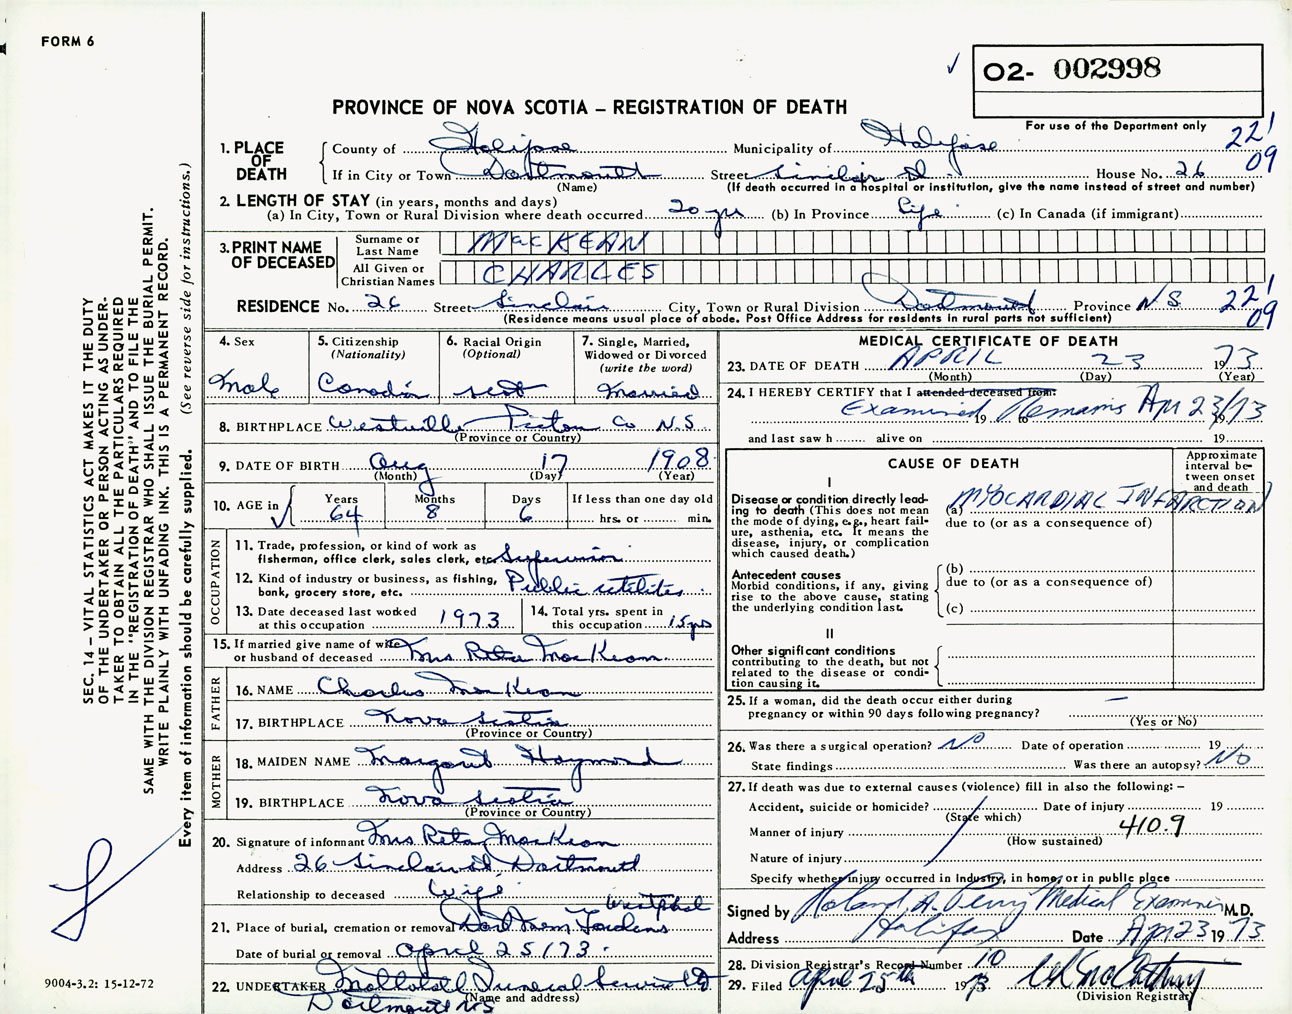 FORM 6
O2- 002998
PROVINCE OF NOVA SCOTIA – REGISTRATION OF DEATH
For use of the Department only
1. PLACE OF DEATH
County of Halifax Municipality of Halifax 221
If in City or Town Dartmouth Street Sinclair St. House No. 26 09
(Name) (If death occurred in a hospital or institution, give the name instead of street and number)
2. LENGTH OF STAY (in years, months and days)
(a) In City, Town or Rural Division where death occurred 20 yrs (b) In Province Life (c) In Canada (if immigrant)
3. PRINT NAME OF DECEASED
Surname or Last Name MacKEAN
All Given or Christian Names CHARLES
RESIDENCE No. 26 Street Sinclair City, Town or Rural Division Dartmouth Province N.S. 221 09
(Residence means usual place of abode. Post Office Address for residents in rural parts not sufficient)
4. Sex
Male
5. Citizenship (Nationality)
Canadian
6. Racial Origin (Optional)
Scot
7. Single, Married, Widowed or Divorced (write the word)
Married
8. BIRTHPLACE Westville Pictou Co N.S.
(Province or Country)
9. DATE OF BIRTH Aug 17 1908
(Month) (Day) (Year)
10. AGE in Years Months Days If less than one day old
64 8 6 hrs. or min.
OCCUPATION
11. Trade, profession, or kind of work as
fisherman, office clerk, sales clerk, etc. Supervisor
12. Kind of industry or business, as fishing,
bank, grocery store, etc. Public utilites
13. Date deceased last worked
at this occupation 1973
14. Total yrs. spent in
this occupation 15 yrs
15. If married give name of wife
or husband of deceased Mrs Reta MacKean
FATHER
16. NAME Charles MacKean
17. BIRTHPLACE Nova Scotia
(Province or Country)
MOTHER
18. MAIDEN NAME Margaret Haymond
19. BIRTHPLACE Nova Scotia
(Province or Country)
20. Signature of informant Mrs Reta MacKean
Address 26 Sinclair St, Dartmouth
Relationship to deceased Wife
Westphal
21. Place of burial, cremation or removal Dart Mem Gardens
Date of burial or removal April 25/73
22. UNDERTAKER Funeral Service Ltd
(Name and address)
Dartmouth N.S
MEDICAL CERTIFICATE OF DEATH
23. DATE OF DEATH APRIL 23 1973
(Month) (Day) (Year)
24. I HEREBY CERTIFY that I attended deceased from:
Examined 19 to Remains Apr 23/73 19
and last saw h alive on 19
CAUSE OF DEATH
Approximate interval between onset and death
I
Disease or condition directly leading to death (This does not mean the mode of dying, e.g., heart failure, asthenia, etc. It means the disease, injury, or complication which caused death.)
(a) MYOCARDIAL INFARCTION
due to (or as a consequence of)
Antecedent causes
Morbid conditions, if any, giving rise to the above cause, stating the underlying condition last.
(b)
due to (or as a consequence of)
(c)
II
Other significant conditions
contributing to the death, but not related to the disease or condition causing it.
25. If a woman, did the death occur either during
pregnancy or within 90 days following pregnancy? —
(Yes or No)
26. Was there a surgical operation? NO Date of operation 19
State findings Was there an autopsy? NO
27. If death was due to external causes (violence) fill in also the following: –
Accident, suicide or homicide? Date of injury 19
(State which)
Manner of injury 410.9
(How sustained)
Nature of injury
Specify whether injury occurred in Industry, in home, or in public place
Signed by Roland A. Perry Medical Examiner M.D.
Address Halifax Date Apr 23 1973
28. Division Registrar's Record Number 10
29. Filed April 25th 1973
(Division Registrar)
SEC. 14 – VITAL STATISTICS ACT MAKES IT THE DUTY
OF THE UNDERTAKER OR PERSON ACTING AS UNDER-
TAKER TO OBTAIN ALL THE PARTICULARS REQUIRED
IN THE "REGISTRATION OF DEATH" AND TO FILE THE
SAME WITH THE DIVISION REGISTRAR WHO SHALL ISSUE THE BURIAL PERMIT.
WRITE PLAINLY WITH UNFADING INK. THIS IS A PERMANENT RECORD.
Every item of information should be carefully supplied. (See reverse side for instructions.)
9004-3.2: 15-12-72